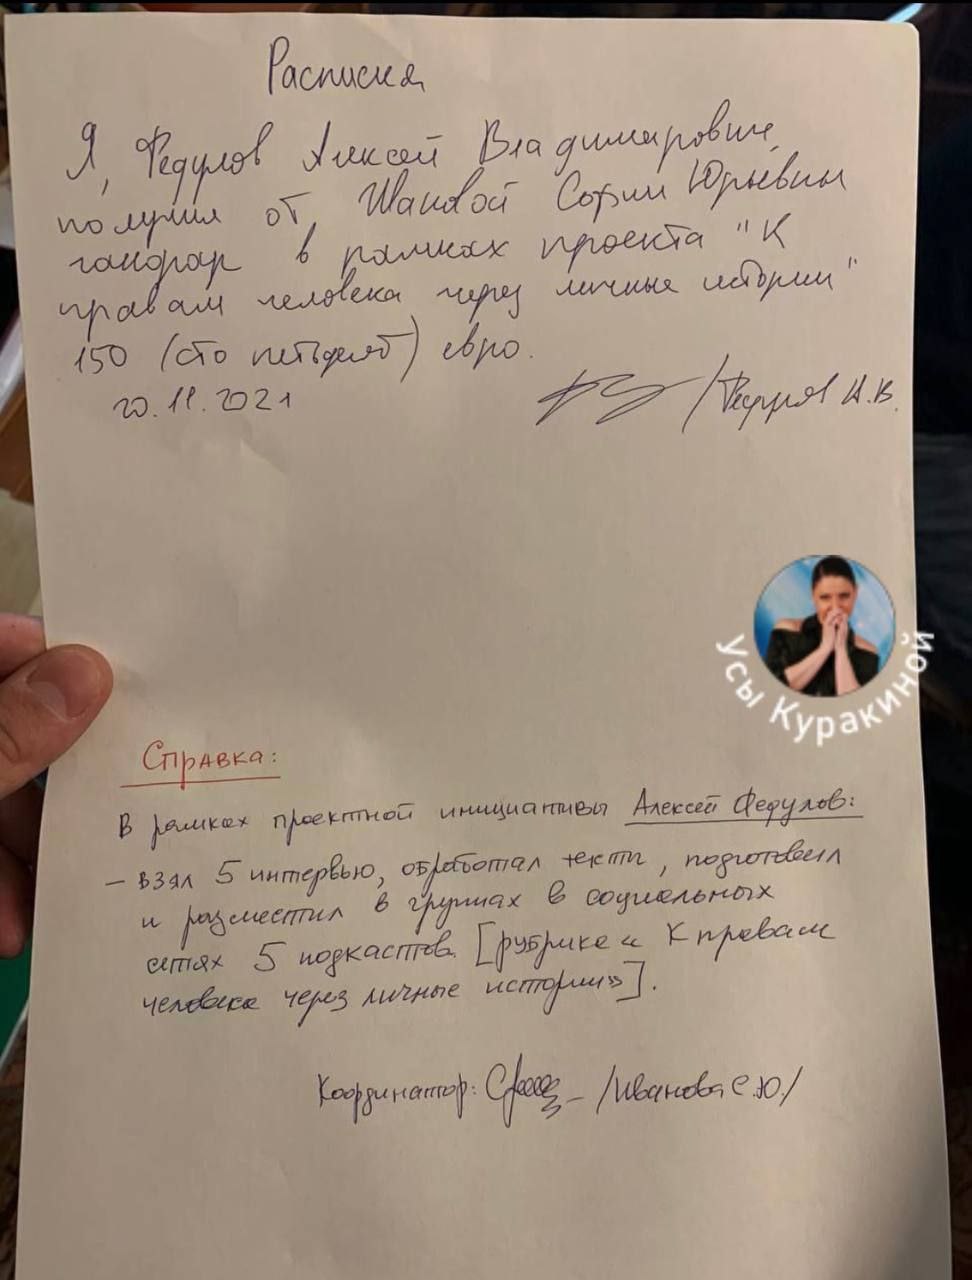 Расписка
Я, Федулов Алексей Владимирович,
получил от Ивановой Софии Юрьевны
гонорар в рамках проекта "К
правам человека через личные истории"
150 (сто пятьдесят) евро.
20.11.2021
/Федулов А.В.
Усы Куракиной
Справка:
В рамках проектной инициативы Алексей Федулов:
– взял 5 интервью, обработал тексты, подготовил
и разместил в группах в социальных
сетях 5 подкастов [рубрика «К правам
человека через личные истории»].
Координатор: /Иванова С.Ю./